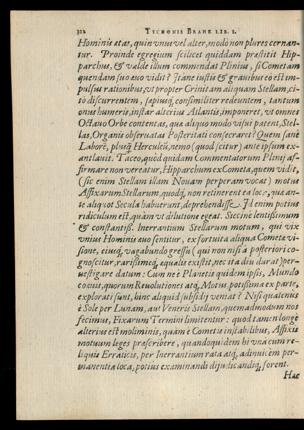 312 TYCHONIS BRAHE LIB. I.
Hominis ætas, quin vnus vel alter, modò non plures cernan-
tur. Proinde egregium scilicet quiddam præstitit Hip-
parchus, & valdè illum commendat Plinius, si Cometam
quendam suo æuo vidit? Itane iustis & grauibus eò est im-
pulsus rationibus, vt propter Crinitam aliquam Stellam, ci-
tò discurrentem, sæpiusq; consimiliter redeuntem, tantum
onus humeris, instar alterius Atlantis, imponeret, vt omnes
Octauo Orbe contentas, qua aliquo modo visui patent, Stel-
las, Organis obseruatas Posteritati consecraret? Quem sanè
Laborē, plusq̃ Herculeū, nemo (quod scitur) ante ipsum ex-
antlauit. Taceo, quod quidam Commentatorum Plinij af-
firmare non vereatur, Hipparchum ex Cometa, quem vidit,
(sic enim Stellam illam Nouam perperam vocat) motus
Affixarum Stellarum, quod, non retinerent ea loca, quæ an-
te aliquot Secula habuerunt, deprehendisse. Id enim potius
ridiculum est, quàm vt dilutione egeat. Siccine lentissimum
& constantiß. Inerrantium Stellarum motum, qui vix
vnius Hominis æuo sentitur, ex fortuita aliqua Cometæ vi-
sione, eiusq; vagabundo gressu (qui non nisi à posteriori co-
gnoscitur, rarißimeq; æqualis existit, nec ita diu durat) per-
uestigare datum: Cum ne è Planetis quidem ipsis, Mundo
coæuis, quorum Reuolutiones atq; Motus, potissima ex parte,
explorati sunt, hinc aliquid subsidij veniat? Nisi quatenus
è Sole per Lunam, aut Veneris Stellam, quemadmodum nos
fecimus, Fixarum Termini limitentur: quod tamen longè
alterius est moliminis, quàm è Cometis instabilibus, Affixis
motuum leges præscribere, quandoquidem hi vna cum re-
liquis Erraticis, per Inerrantium rata atq; adinuicem per-
manentia loca, potius examinandi dijudicandiq; forent.
Hæc